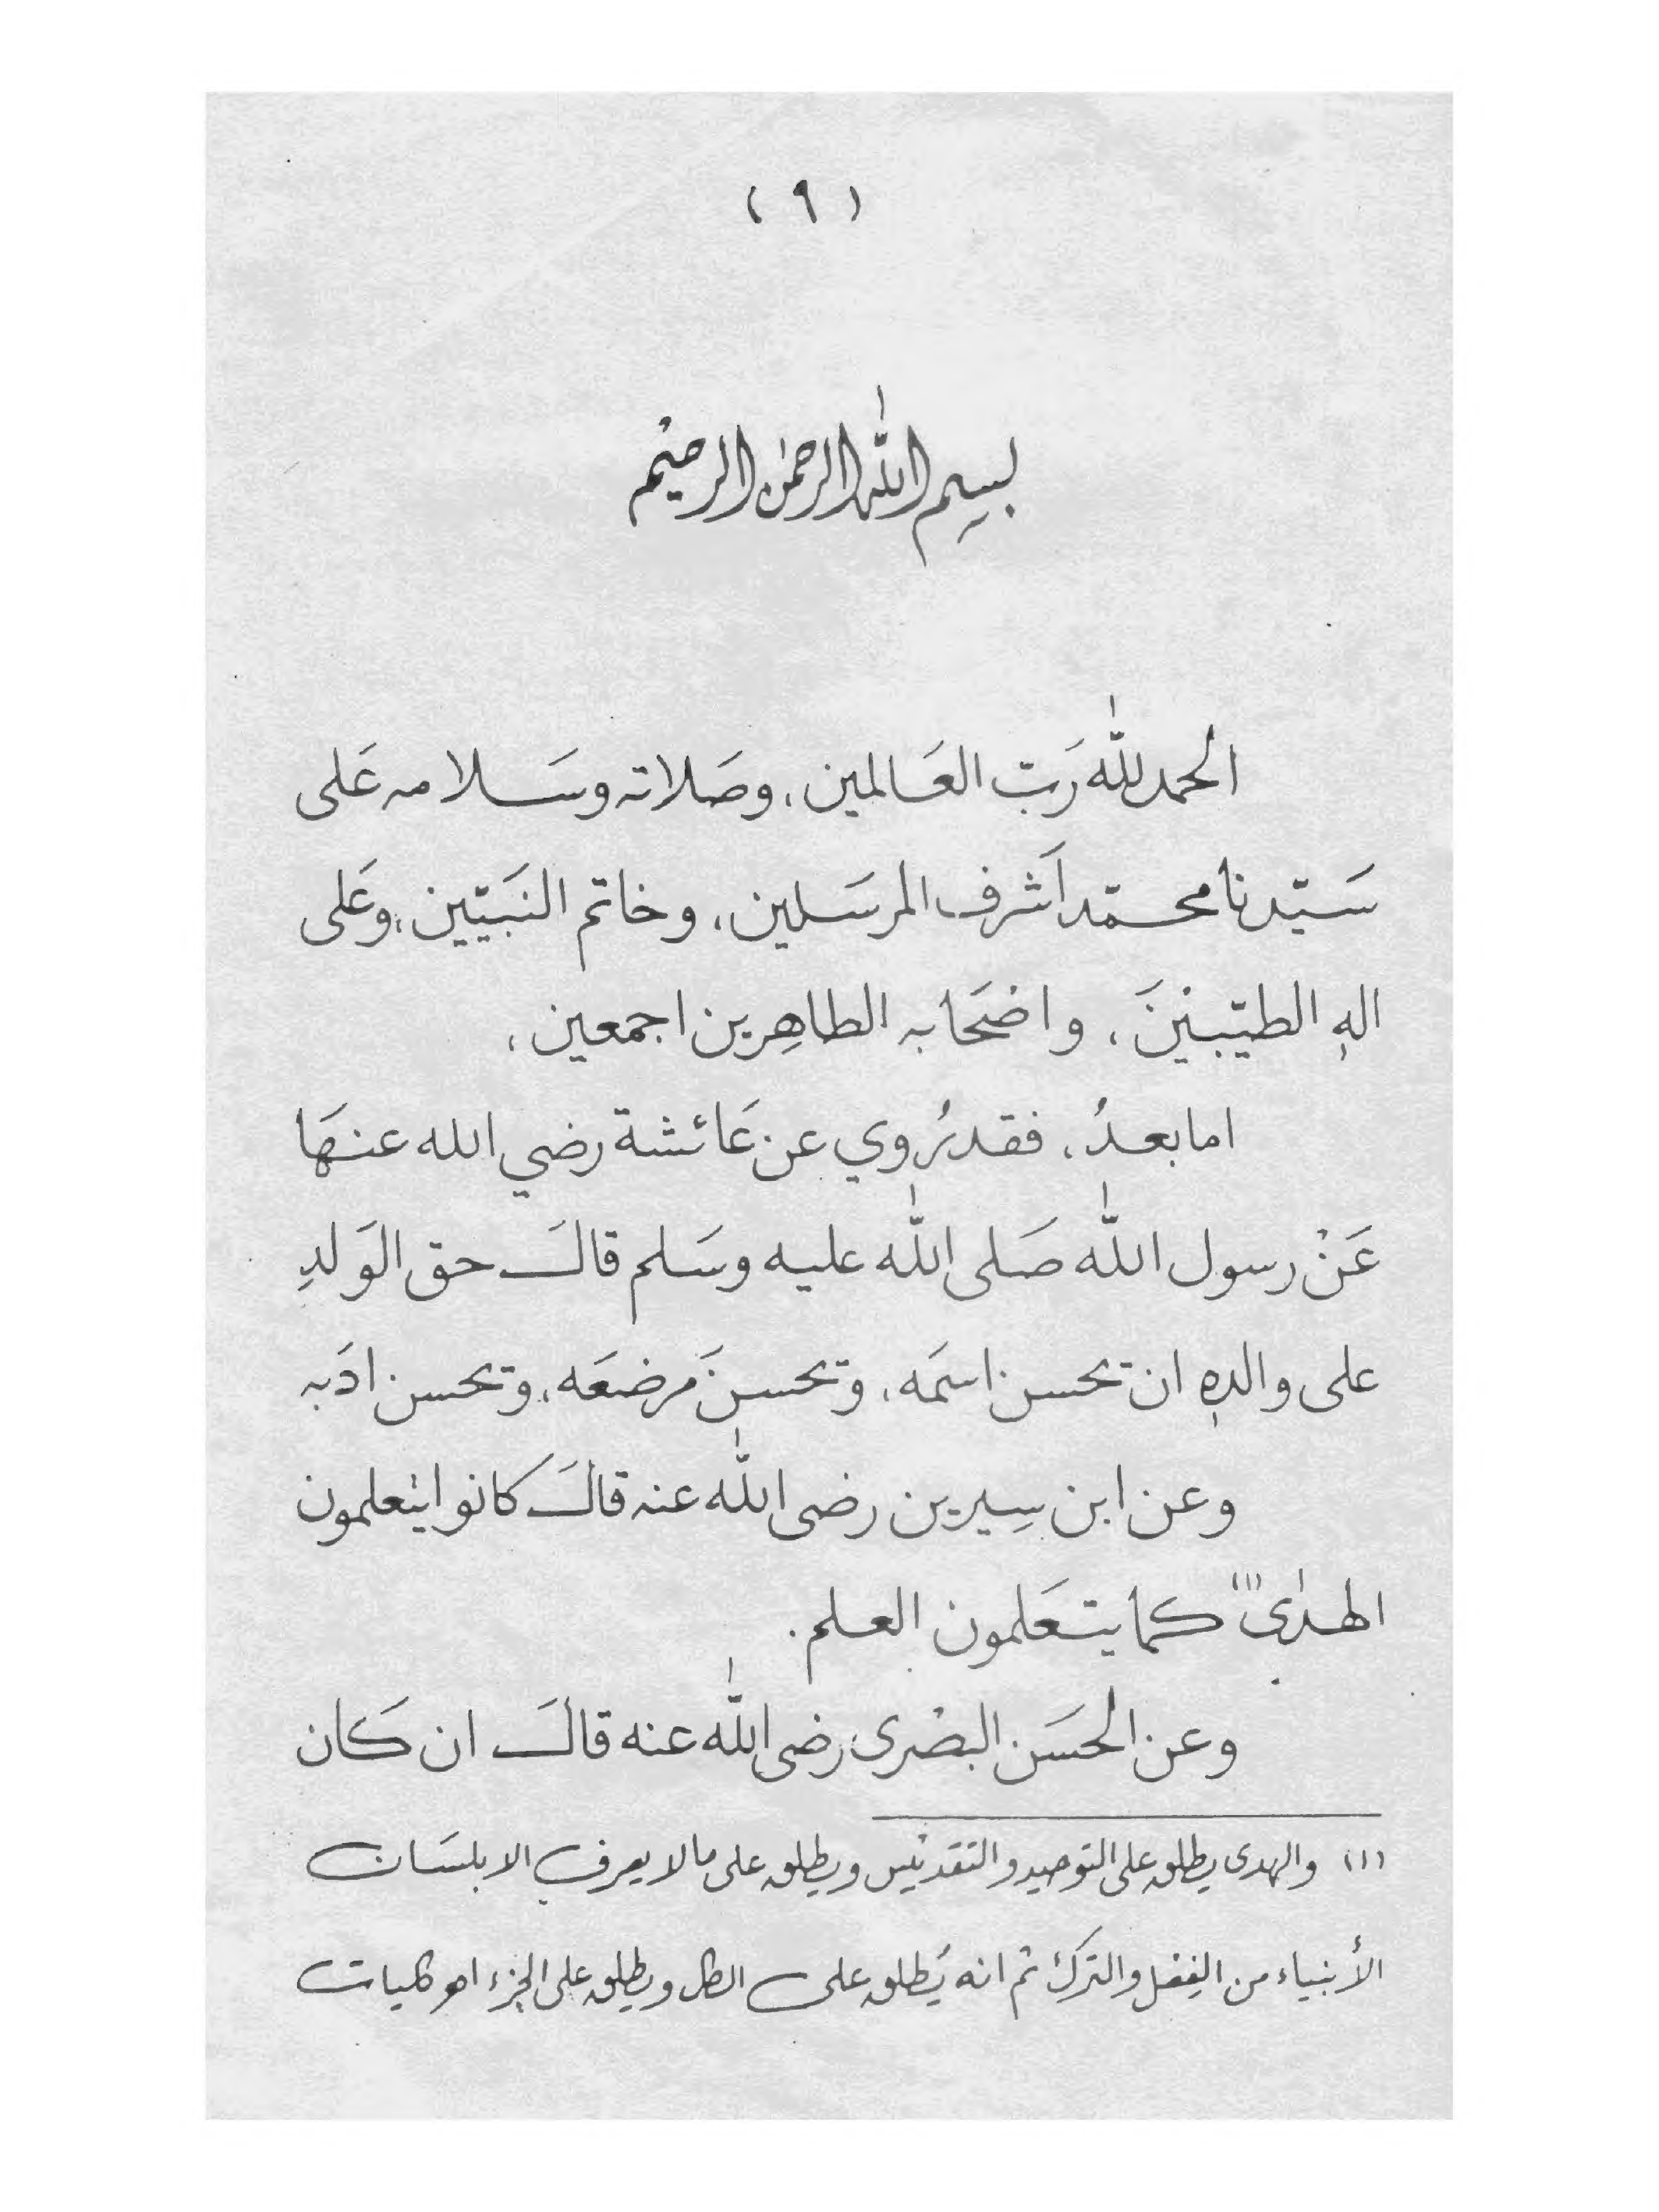 (٩)
بسم الله الرحمن الرحيم
الحمد لله رَبّ العَالمين، وصَلاته وسَلامه عَلى
سَيّدنا محمّد اَشرف المرسَلين، وخاتم النبَيّين، وعَلى
الهِ الطيّبينَ، واصْحَابه الطاهِرين اجمعين،
اما بعدُ، فقد رُوي عن عَائشة رضي الله عنهَا
عَنْ رسول الله صَلى الله عليه وسَلم قالَ حق الوَلدِ
على والدهِ ان يحسن اسمَه، ويحسنَ مرضعَه، ويحسن ادَبه
وعن ابن سِيرين رضى الله عنه قالَ كانوا يتعلمون
الهدٰى (١) كما يتعَلمون العلم.
وعن الحسَن البصْرى رضى الله عنه قالَ ان كَان
(١) والهدى يطلق على التوحيد والتقديْس ويطلق على ما لا يعرف الا بلسَان
الأنبياء من الفِعْل والتركِ ثم انه يُطلق على الكل ويطلق على الجزء اهو كليات